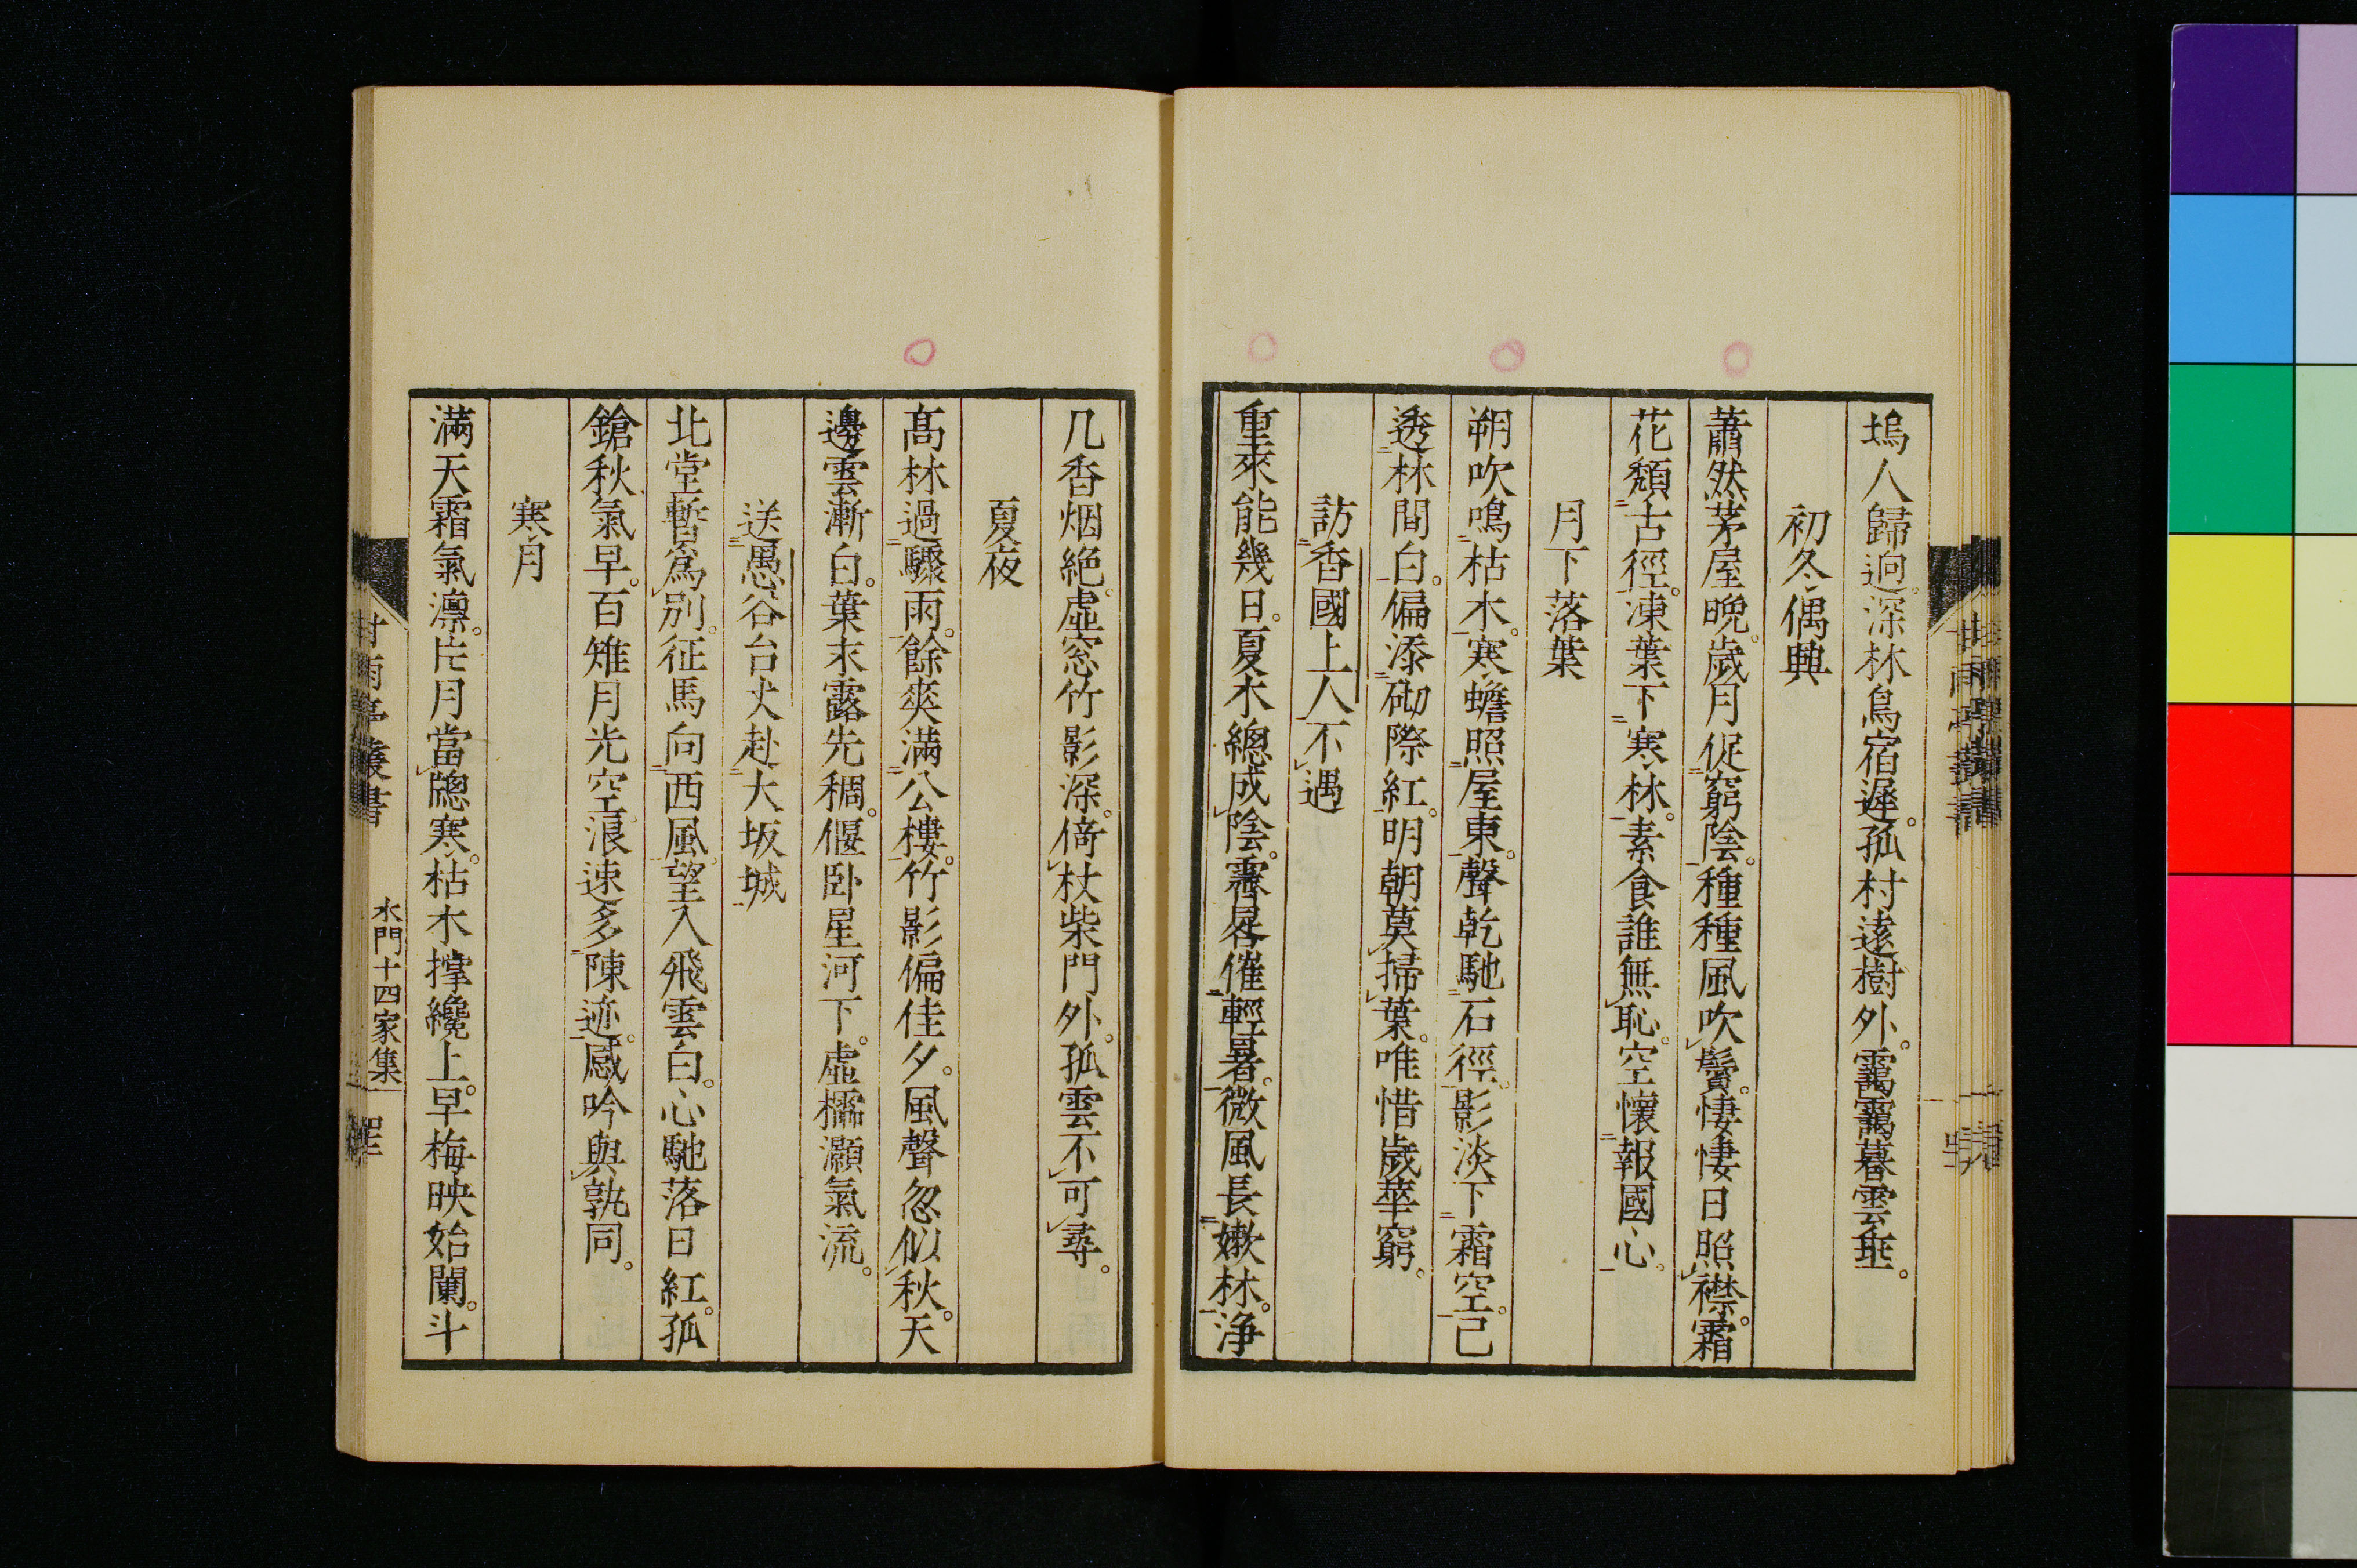 塢人歸逈。深林鳥宿遲。孤村遠樹外。靄靄暮雲垂。
初冬偶興
蕭然茅屋晚。歲月促窮陰。種種風吹鬢。悽悽日照襟。霜
花頹古徑。凍葉下寒林。素食誰無恥。空懷報國心。
月下落葉
朔吹鳴枯木。寒蟾照屋東。聲乾馳石徑。影淡下霜空。已
透林間白。偏添砌際紅。明朝莫掃葉。唯惜歲華窮。
訪香國上人不遇
重來能幾日。夏木總成陰。霽晷催輕暑。微風長嫩林。淨
几香烟絕。虛窓竹影深。倚杖柴門外。孤雲不可尋。
夏夜
高林過驟雨。餘爽滿公樓。竹影偏佳夕。風聲忽似秋。天
邊雲漸白。葉末露先稠。偃卧星河下。虛櫺灝氣流。
送愚谷台丈赴大坂城
北堂暫爲別。征馬向西風。望入飛雲白。心馳落日紅。孤
鎗秋氣早。百雉月光空。浪速多陳迹。感吟與孰同。
寒月
滿天霜氣凛。片月當牕寒。枯木撑纔上。早梅映始闌。斗
甘雨亭叢書
水門十四家集